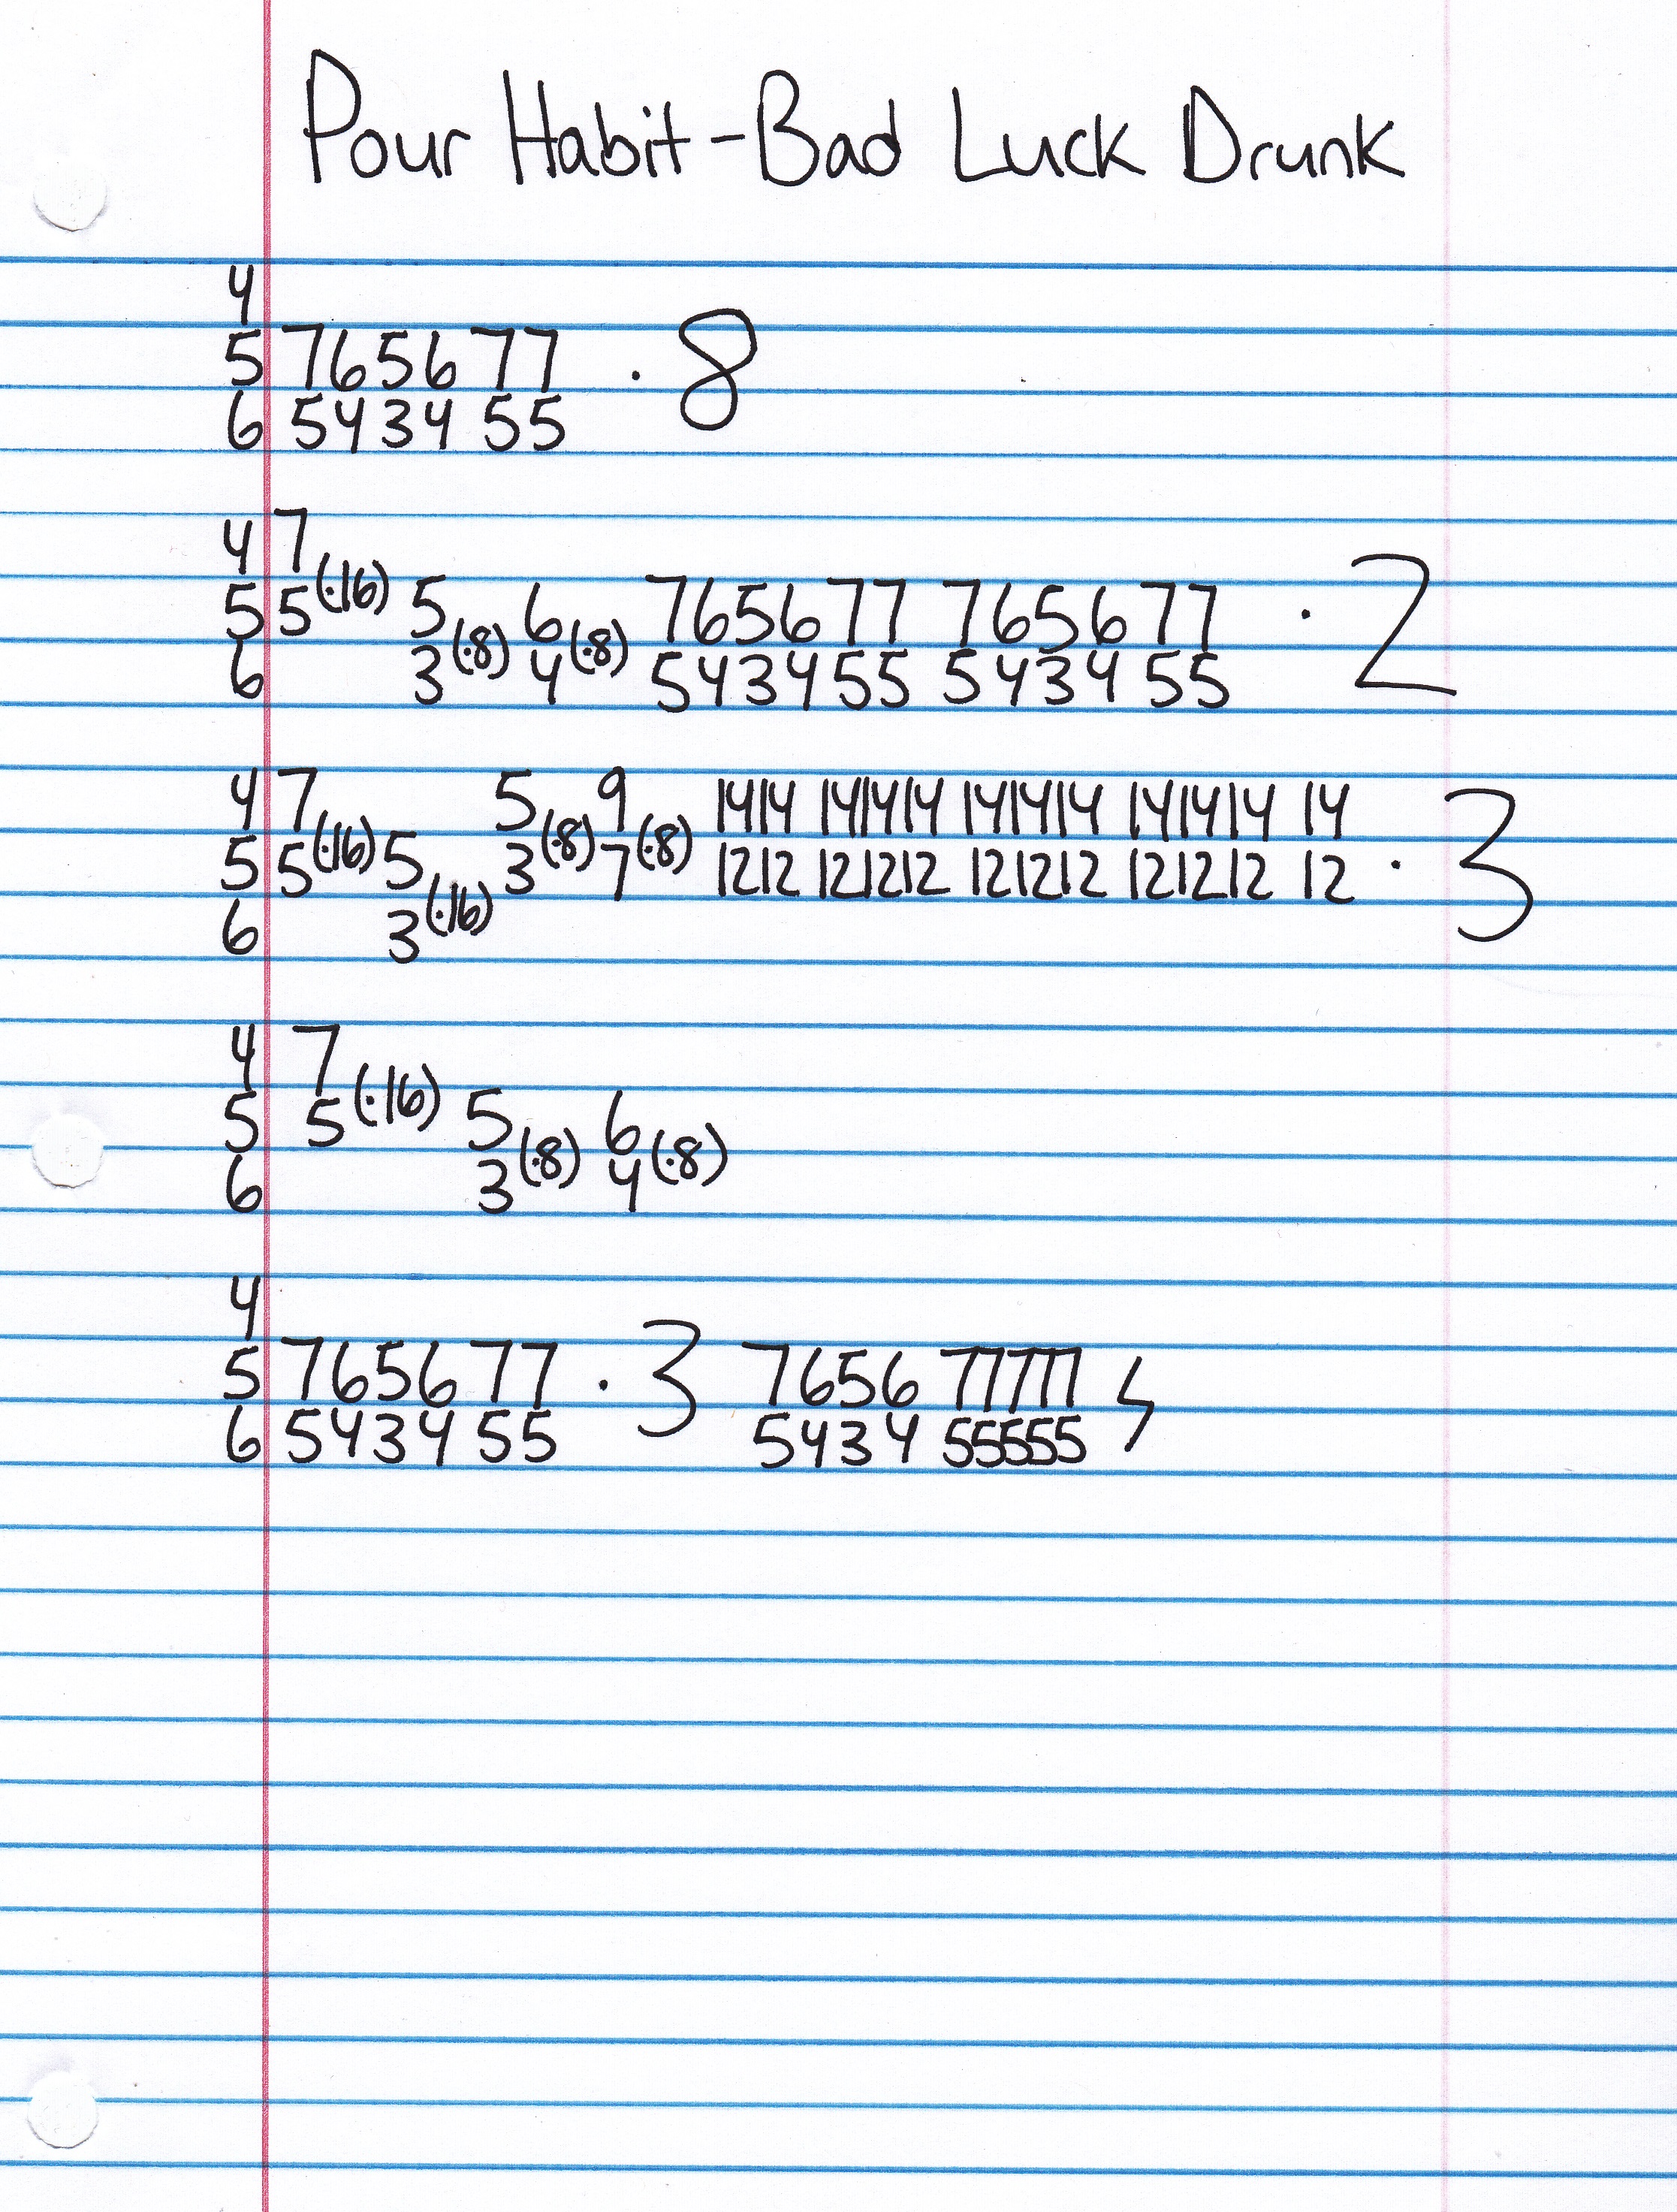 Pour Habit-Bad Luck Drunk
4
5 765677 . 8
6 543455
4 7
5 5(·16) 5 6 765677 765677 . 2
6 3(·8) 4(·8) 543455 543455
4 7 5 9 1414 141414 141414 141414 14
5 5(·16) 5 3(·8) 7(·8) 1212 121212 121212 121212 12 . 3
6 3(·16)
4 7
5 5(·16) 5 6
6 3(·8) 4(·8)
4
5 765677 . 3 7656 77777
6 543455 5434 55555